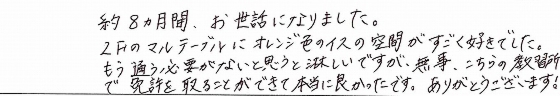 約8ヵ月間、お世話になりました。
2Fのマルテーブルにオレンジ色のイスの空間がすごく好きでした。
もう通う必要がないと思うと淋しいですが、無事、こちらの教習所
で免許を取ることができて本当に良かったです。ありがとうございます!